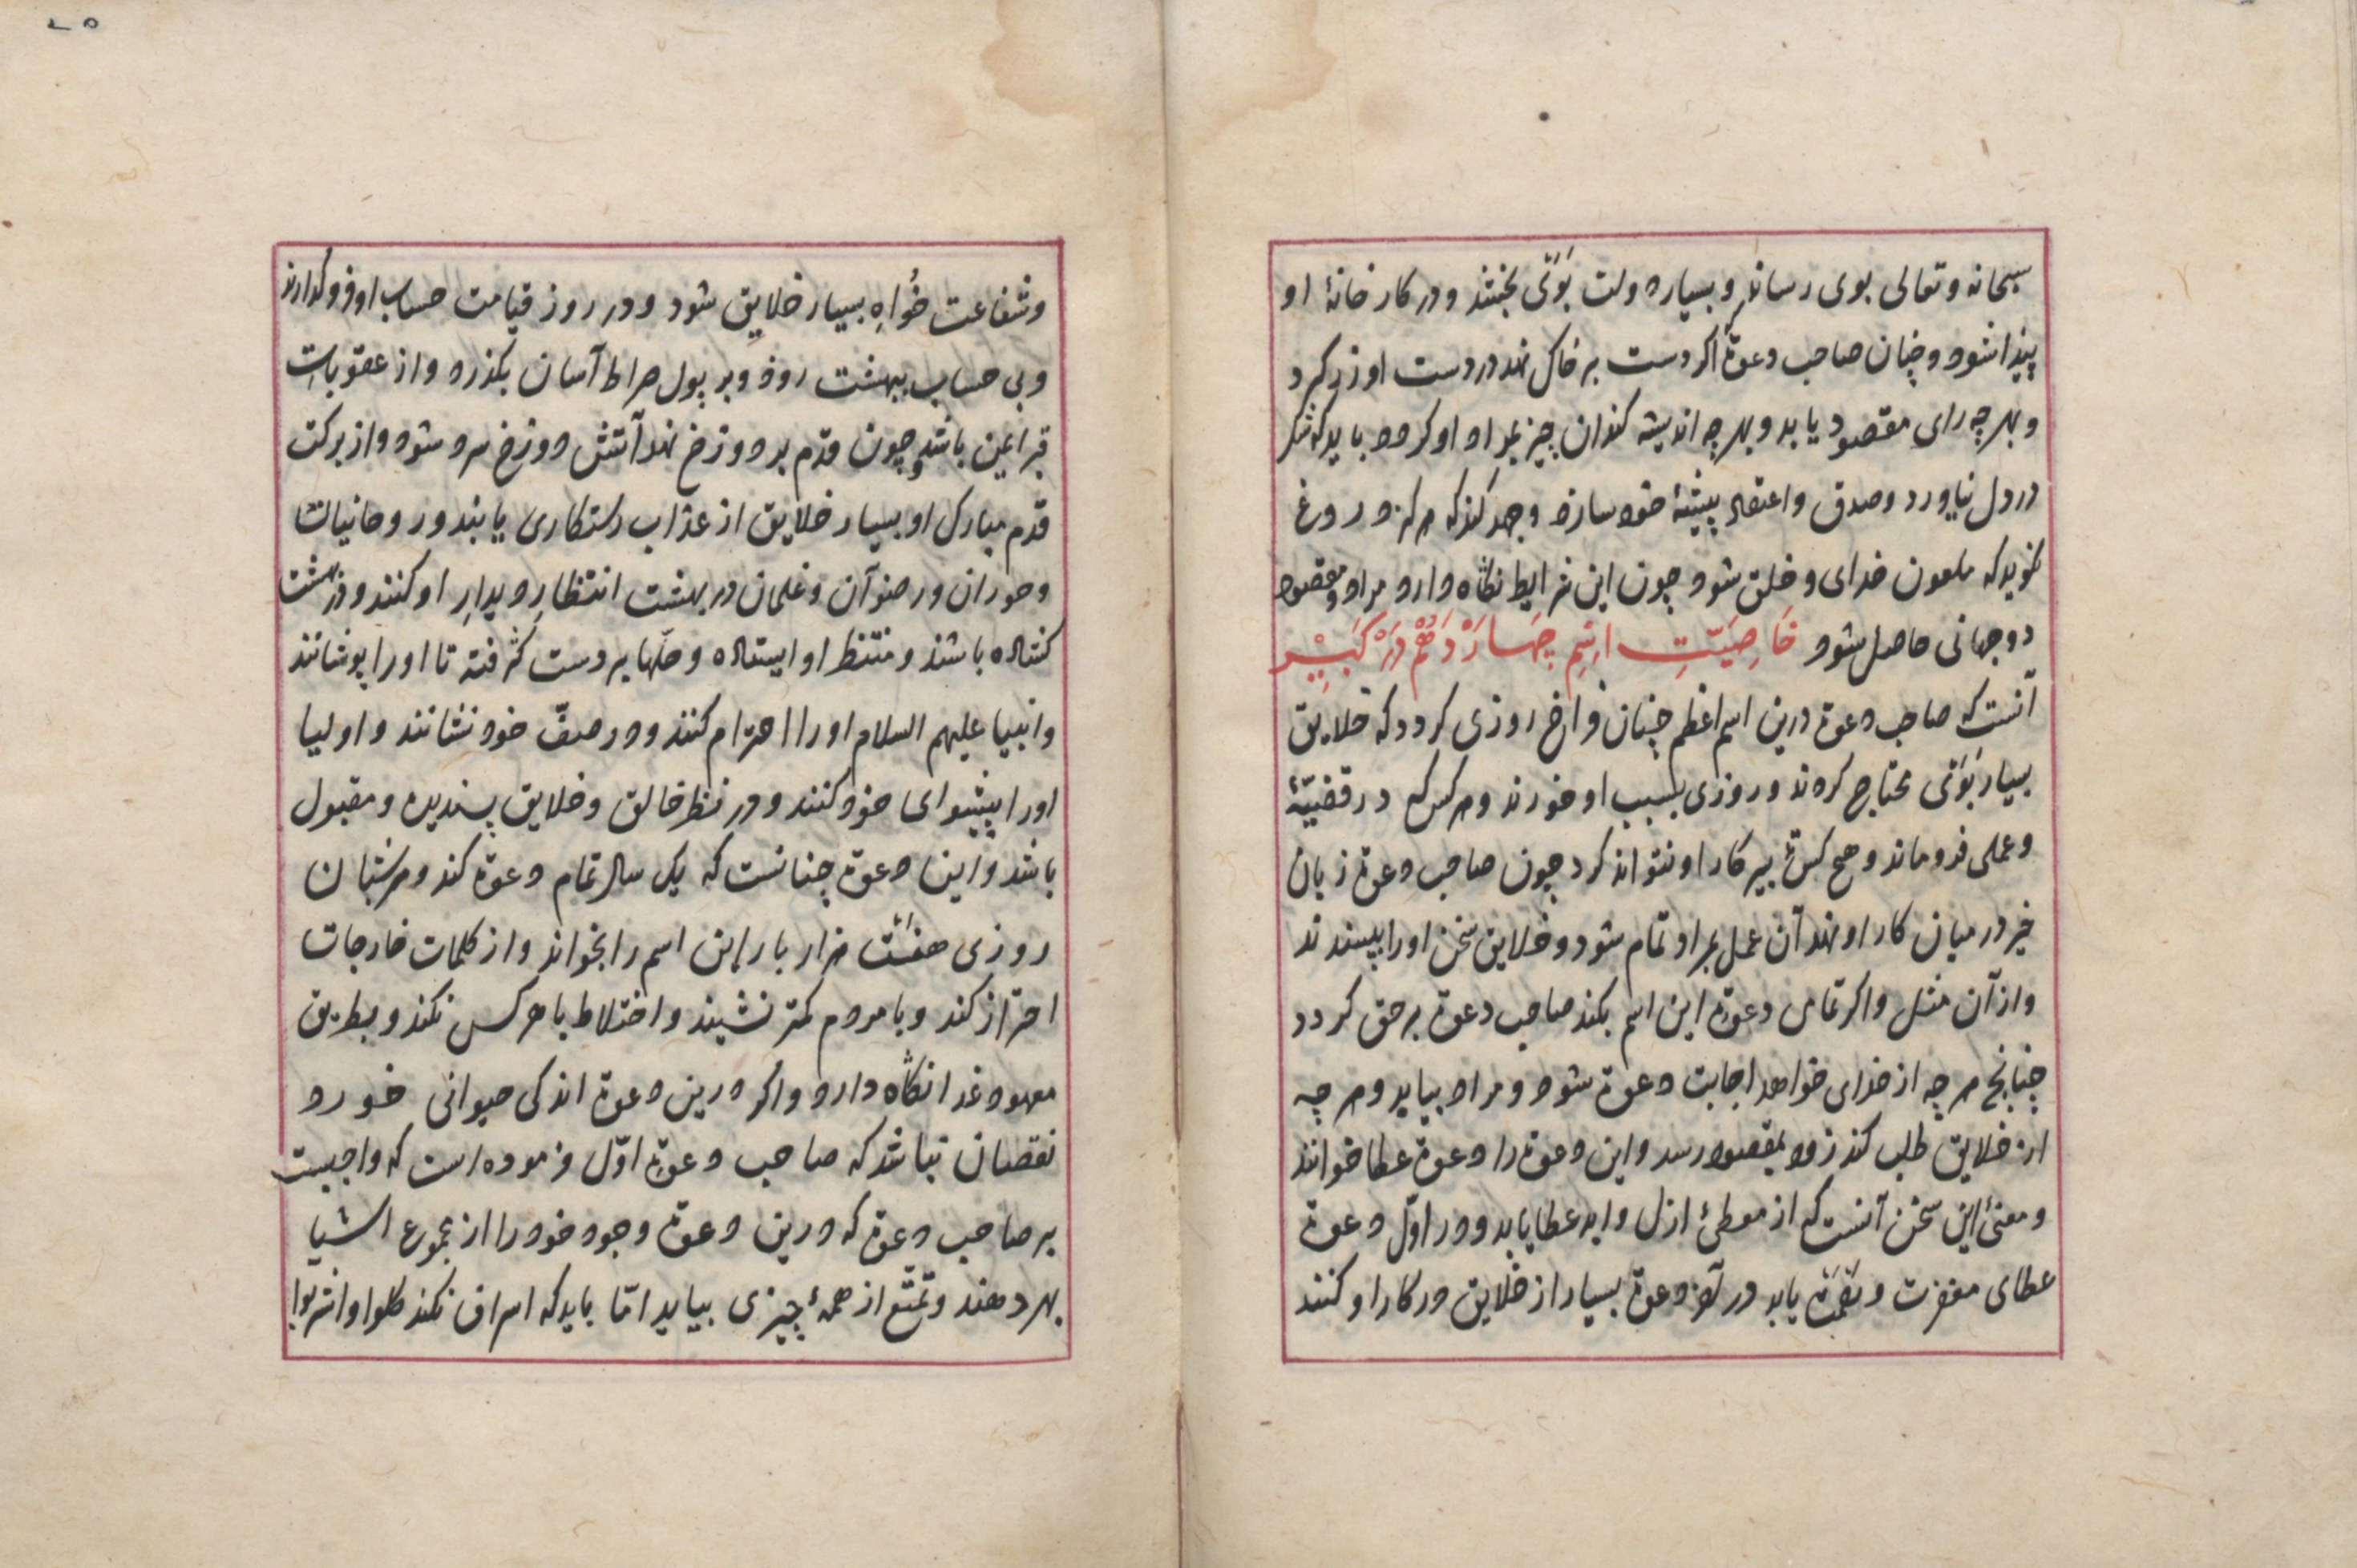 سبحانه و تعالی بوی رساند و بسیار دولت بوی بخشد و در کار خانهٔ او
پیدا شود و چنان صاحب دعوة اکر دست بر خاک نهد در دست او زر کردد
و بهر چه رای مقصود یابد و بهر چه اندیشه کند ان چیز بمراد او کردد باید که شک
در دل نیاورد و صدق و اعتقاد پیشهٔ خود سازد و جهد کند که هرکز دروغ
نکوید که ملعون خدای و خلق شود چون این شرایط نکاه دارد مراد و مقصود
دو جهانی حاصل شود خاصیت اسم چهاردهم در کبیر
آنست که صاحب دعوة درین اسم اعظم چنان فراخ روزی کردد که خلایق
بسیار بوی محتاج کردند و روزی بسبب او خورند و هر کس که در قضیّهٔ
و عملی فرو ماند و هیچ کس تدبیر کار او نتواند کرد چون صاحب دعوة زبان
خیر در میان کار او نهد آن عمل بمراد تمام شود و خلایق سخن اورا پسندند
و از آن مثل و اکر تمامی دعوة این اسم بکند صاحب دعوة برحق کردد
چنانچ هر چه از خدای خواهد اجابت دعوة شود و مراد بیابد و هر چه
از خلایق طلب کند زود بمقصود رسد و این دعوة را دعوة عطا خوانند
و معنیٔ این سخن آنست که از معطیٔ ازل و ابد عطا یابد و در اوّل دعوة
عطای مغفرت و نعمت یابد در آخر دعوة بسیار از خلایق در کار او کنند
و شفاعت خواهِ بسیار خلایق شود و در روز قیامت حساب او فرو کذارند
و بی حساب ببهشت رود و بر پول صراط آسان بکذرد و از عقوبات
قبر ایمن باشد و چون قدم بر دوزخ نهد آتش دوزخ سرد شود و از برکت
قدم مبارک او بسیار خلایق از عذاب رستکاری یابند و روحانیات
و حوران و رضوآن و غلمان در بهشت انتظارِ دیدارِ او کنند و در بهشت
کشاده باشد و منتظر او ایستاده و حلّها بر دست کرفته تا اورا پوشانند
و انبیا علیهم السلام اورا احترام کنند و در صفّ خود نشانند و اولیا
اورا پیشوای خود کنند و در نظر خالق و خلایق پسندیده و مقبول
باشد و این دعوة چنانست که یک سال تمام دعوة کند و هر شبان
روزی هفت هزار بار این اسم را بخواند و از کلمات خارجات
احتراز کند و با مردم کمتر نشیند و اختلاط با هر کس نکند و بطریق
معهود غدا نکاه دارد و اکر درین دعوة اندکی حیوانی خورد
نقصان نباشد که صاحب دعوة اوّل فرموده است که واجبست
بر صاحب دعوة که درین دعوة وجود خود را از مجموع اشیا
بهر دهند و تمتّع از همهٔ چیزی بیابد امّا باید که اسراف نکند کلوا واشربوا